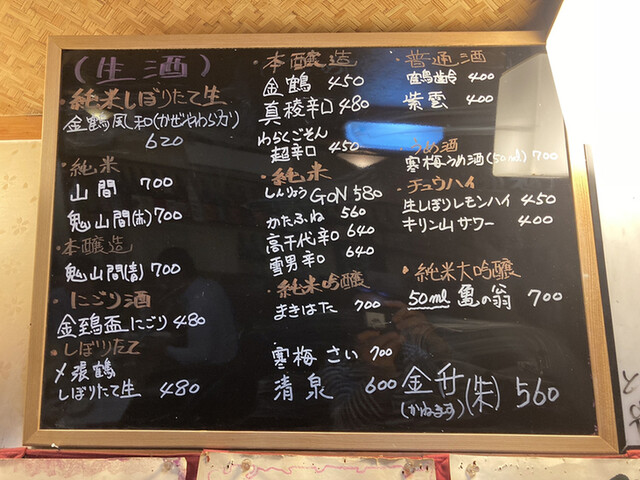 (生酒)
・純米しぼりたて生
金鶴風和(かぜやわらか)
620
・純米
山間 700
鬼山間(赤)700
・本醸造
鬼山間(青)700
・にごり酒
金鵄盃にごり 480
・しぼりたて
〆張鶴
しぼりたて生 480
・本醸造
金鶴 450
真稜辛口 480
わらくごそん
超辛口 450
・純米
しんりょうGON 580
かたふね 560
高千代辛口 640
雪男辛口 640
・純米吟醸
まきはた 700
寒梅 さい 700
清泉 600
・普通酒
鶴齢 400
紫雲 400
・うめ酒
寒梅うめ酒(50ml) 700
・チュウハイ
生しぼりレモンハイ 450
キリン山サワー 400
・純米大吟醸
50ml 亀の翁 700
金升(朱) 560
(かねます)